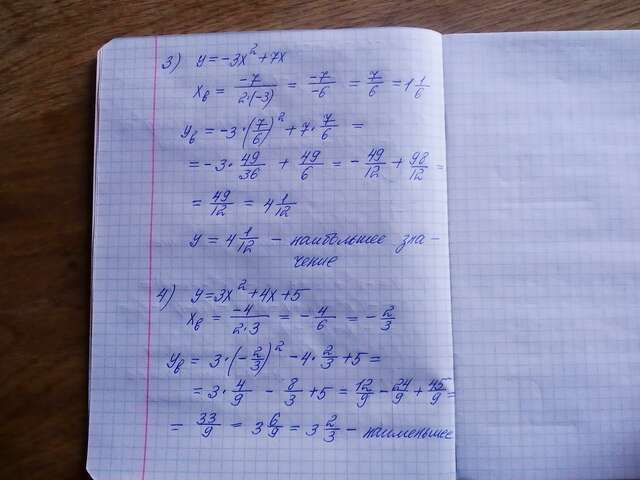 3) y = -3x² + 7x
xв = -7/2·(-3) = -7/-6 = 7/6 = 1 1/6
yв = -3·(7/6)² + 7·7/6 =
= -3·49/36 + 49/6 = -49/12 + 98/12 =
= 49/12 = 4 1/12
y = 4 1/12 - наибольшее зна-
чение
4) y = 3x² + 4x + 5
xв = -4/2·3 = -4/6 = -2/3
yв = 3·(-2/3)² - 4·2/3 + 5 =
= 3·4/9 - 8/3 + 5 = 12/9 - 24/9 + 45/9 =
= 33/9 = 3 6/9 = 3 2/3 - наименьшее